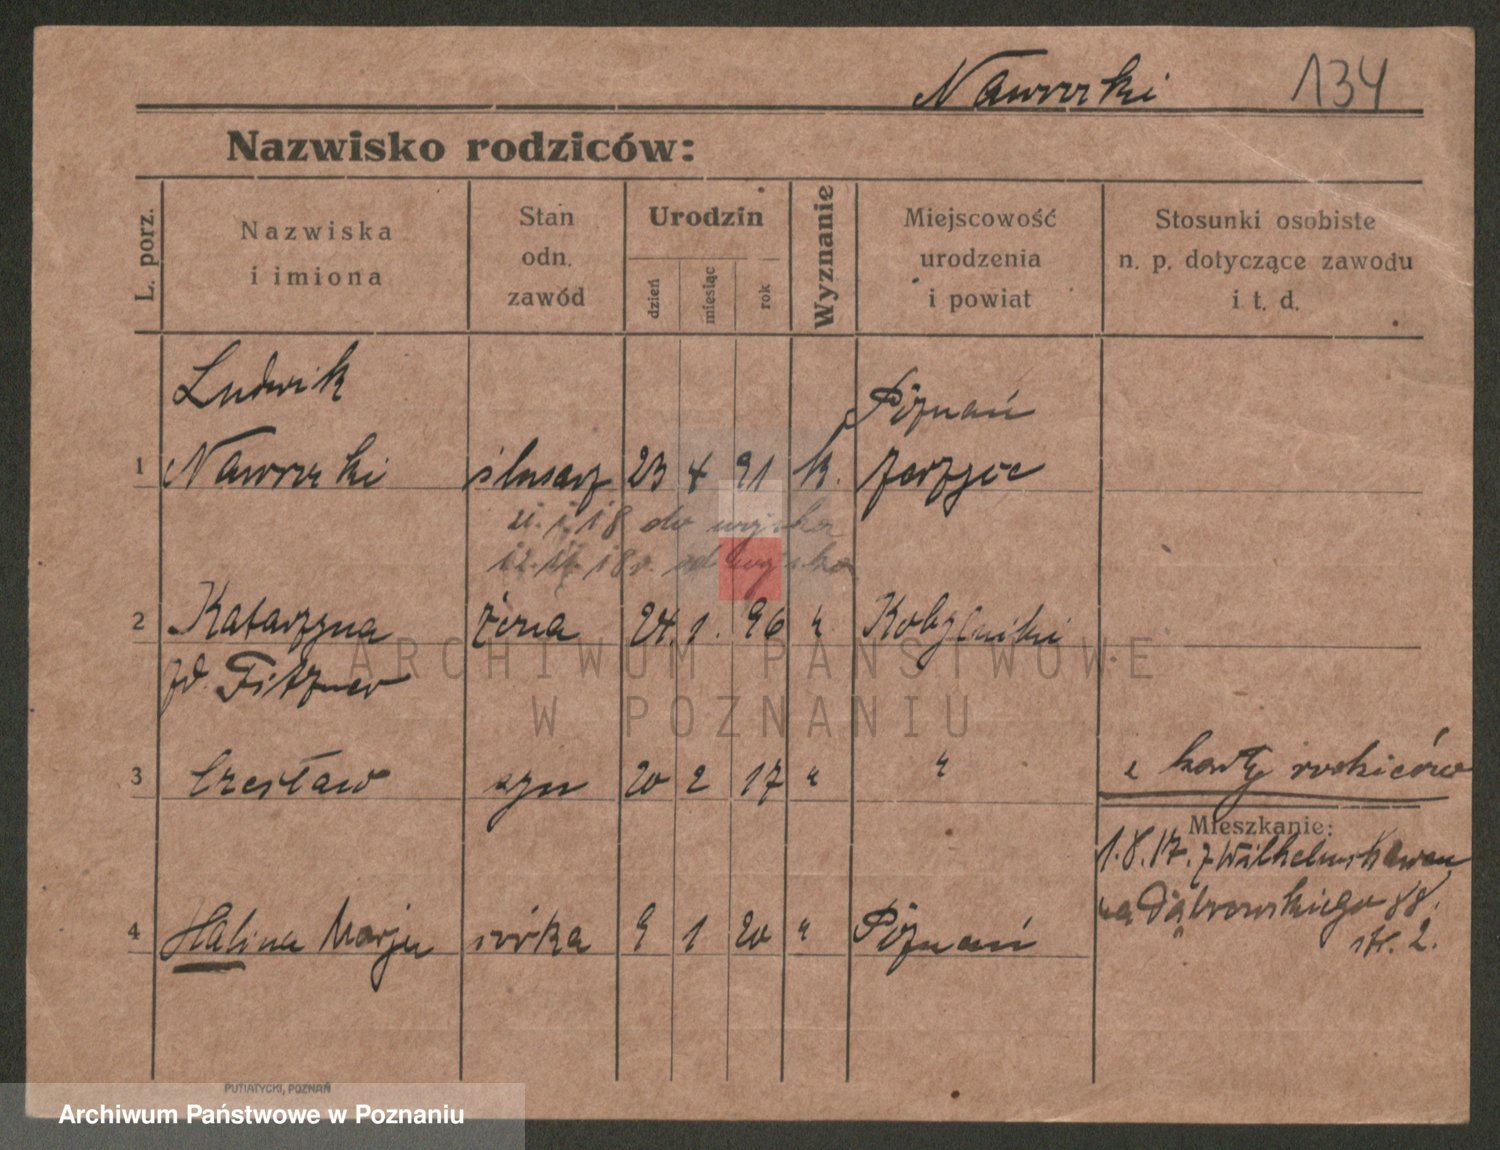 Nawrocki 134
Nazwisko rodziców:
L. porz.
Nazwiska
i imiona
Stan
odn.
zawód
Urodzin
dzień
miesiąc
rok
Wyznanie
Miejscowość
urodzenia
i powiat
Stosunki osobiste
n. p. dotyczące zawodu
i. t. d.
Ludwik Poznań
1 Nawrocki ślusarz 23 4 91 k.
21. 1. 18 do wojska
12. 18 r. od wojska
2 Katarzyna żona 24. 1. 96 " Kobylniki
zd. Fitzner
3 Czesław syn 20 2 17 " "
z karty rodziców
Mieszkanie:
1.8.17. z
na Dąbrowskiego 88.
str. 2.
4 Halina Marja córka 9 1 20 " Poznań
PUTIATYCKI, POZNAŃ
ARCHIWUM PAŃSTWOWE
W POZNANIU
Archiwum Państwowe w Poznaniu